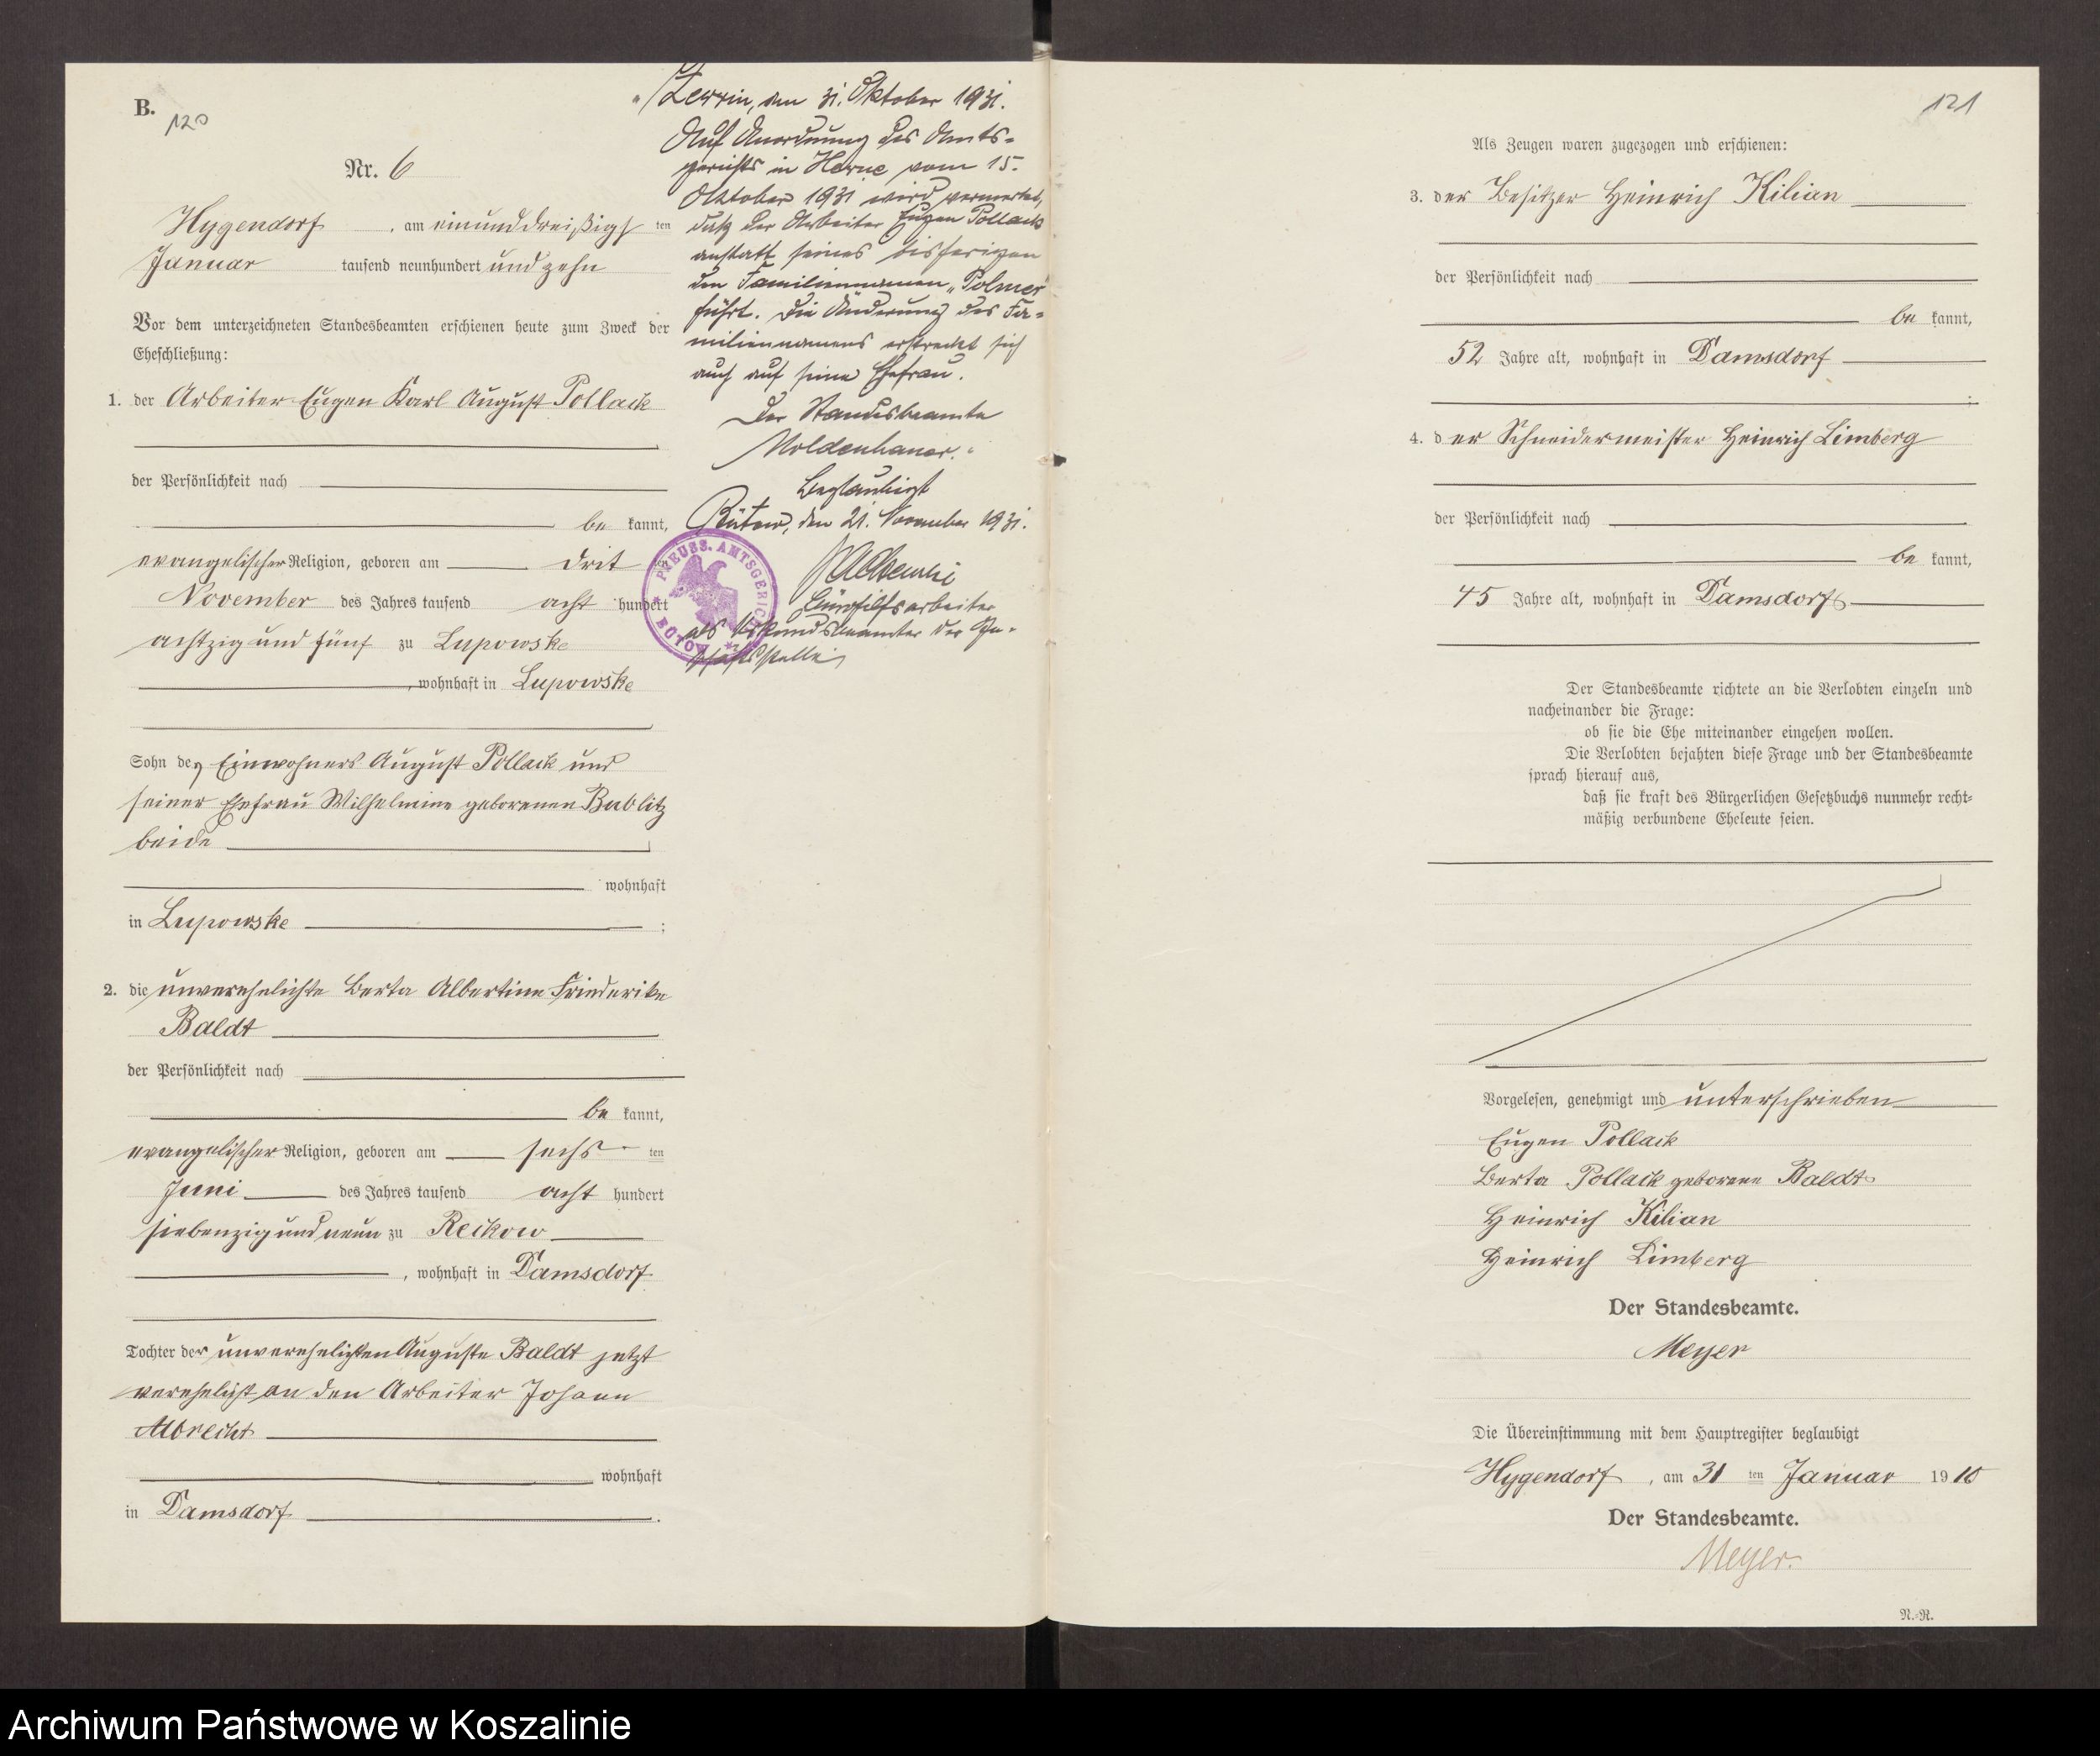 B.
120
Nr. 6
Hygendorf, am einunddreißigsten
Januar tausend neunhundert und zehn
Vor dem unterzeichneten Standesbeamten erschienen heute zum Zweck der
Eheschließung:
1. der Arbeiter Eugen Karl August Pollack
der Persönlichkeit nach
be kannt,
evangelischer Religion, geboren am drit
November des Jahres tausend acht hundert
achtzig und fünf zu Lupowske
, wohnhaft in Lupowske
Sohn des Einwohners August Pollack und
seiner Ehefrau Wilhelmine geborenen Bublitz
beide
wohnhaft
in Lupowske ;
2. die unverehelichte Berta Albertine Friederike
Baldt
der Persönlichkeit nach
be kannt,
evangelischer Religion, geboren am sechs ten
Juni des Jahres tausend acht hundert
siebenzig und neun zu Reckow
, wohnhaft in Damsdorf
Tochter der unverehelichten Auguste Baldt jetzt
verehelicht an den Arbeiter Johann
Albrecht
wohnhaft
in Damsdorf .
Zerrin, den 31. Oktober 1931.
Auf Anordnung des Amts=
gerichts in Herne vom 15.
Oktober 1931 wird vermerkt,
daß der Arbeiter Eugen Pollack
anstatt seines bisherigen
den Familiennamen „Polmer"
führt. Die Änderung des Fa=
miliennamens erstreckt sich
auch auf seine Ehefrau.
Der Standesbeamte
Moldenhauer."
Beglaubigt
Bütow, den 21. November 1931.
Bürohilfsarbeiter
als Urkundsbeamter der Ge-
schäftsstelle
PREUSS. AMTSGERICHT
BÜTOW
121
Als Zeugen waren zugezogen und erschienen:
3. der Besitzer Heinrich Kilian
der Persönlichkeit nach
be kannt,
52 Jahre alt, wohnhaft in Damsdorf
;
4. der Schneidermeister Heinrich Limberg
der Persönlichkeit nach
be kannt,
45 Jahre alt, wohnhaft in Damsdorf
Der Standesbeamte richtete an die Verlobten einzeln und
nacheinander die Frage:
ob sie die Ehe miteinander eingehen wollen.
Die Verlobten bejahten diese Frage und der Standesbeamte
sprach hierauf aus,
daß sie kraft des Bürgerlichen Gesetzbuchs nunmehr recht=
mäßig verbundene Eheleute seien.
Vorgelesen, genehmigt und unterschrieben
Eugen Pollack
Berta Pollack geborene Baldt
Heinrich Kilian
Heinrich Limberg
Der Standesbeamte.
Meyer
Die Übereinstimmung mit dem Hauptregister beglaubigt
Hygendorf, am 31 ten Januar 1910
Der Standesbeamte.
Meyer.
N.-R.
Archiwum Państwowe w Koszalinie